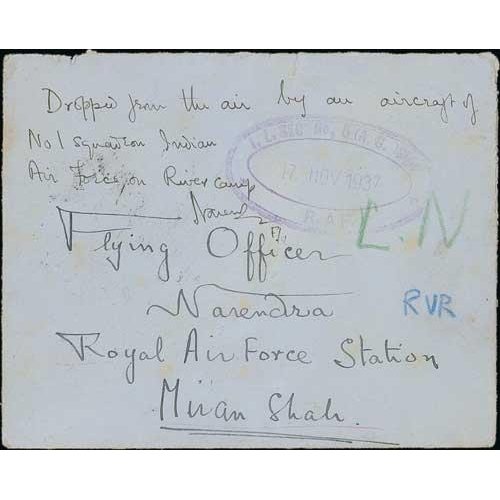 Dropped from the air by an aircraft of
No 1 Squadron Indian
Air Force, on River camp
17 NOV 1937
R.A.F.
L.N
Flying Officer
Narendra
RVR
Royal Air Force Station
Miran Shah.